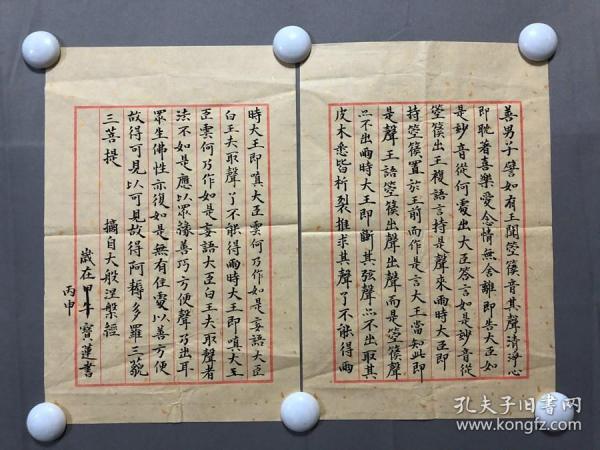 善男子譬如有王聞箜篌音其聲清淨心
即耽著喜樂愛念情無舍離即告大臣如
是妙音從何處出大臣答言如是妙音從
箜篌出王複語言持是聲來爾時大臣即
持箜篌置於王前而作是言大王當知此即
是聲王語箜篌出聲出聲而是箜篌聲
亦不出爾時大王即斷其弦聲亦不出取其
皮木悉皆析裂推求其聲了不能得爾
時大王即嗔大臣雲何乃作如是妄語大臣
白王夫取聲了不能得爾時大王即嗔大王
臣雲何乃作如是妄語大臣白王夫取聲者
法不如是應以眾緣善巧方便聲乃出耳
眾生佛性亦復如是無有住處以善方便
故得可見以可見故得阿耨多羅三藐
三菩提 摘自大般涅槃經
歲在甲午 寶蓮書
丙申
孔夫子旧书网
www.kongfz.com